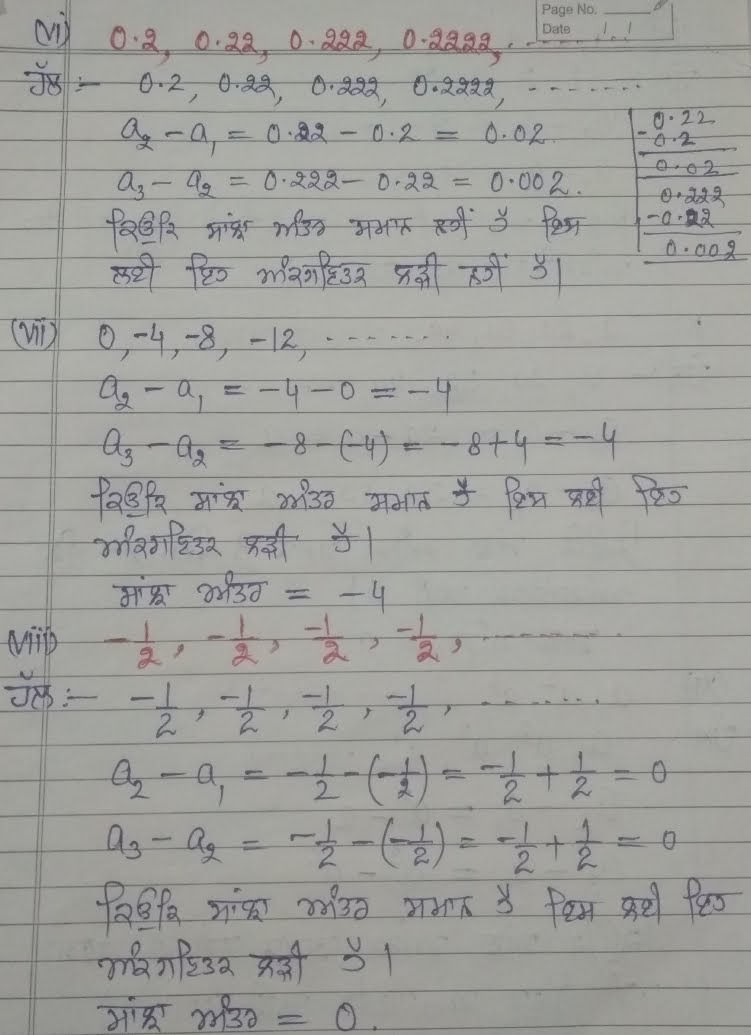 Page No.
Date / /
(vi) 0.2, 0.22, 0.222, 0.2222, .......
ਹੱਲ :- 0.2, 0.22, 0.222, 0.2222, ........
a₂ - a₁ = 0.22 - 0.2 = 0.02
a₃ - a₂ = 0.222 - 0.22 = 0.002.
0.22
- 0.2
0.02
0.222
-0.22
0.002
ਕਿਉਂਕਿ ਸਾਂਝਾ ਅੰਤਰ ਸਮਾਨ ਨਹੀਂ ਹੈ ਇਸ
ਲਈ ਇਹ ਅੰਕਗਣਿਤਕ ਲੜੀ ਨਹੀਂ ਹੈ।
(vii) 0, -4, -8, -12, ........
a₂ - a₁ = -4 - 0 = -4
a₃ - a₂ = -8 - (-4) = -8 + 4 = -4
ਕਿਉਂਕਿ ਸਾਂਝਾ ਅੰਤਰ ਸਮਾਨ ਹੈ ਇਸ ਲਈ ਇਹ
ਅੰਕਗਣਿਤਕ ਲੜੀ ਹੈ।
ਸਾਂਝਾ ਅੰਤਰ = -4
(viii) -1/2, -1/2, -1/2, -1/2, ........
ਹੱਲ :- -1/2, -1/2, -1/2, -1/2, .......
a₂ - a₁ = -1/2 - (-1/2) = -1/2 + 1/2 = 0
a₃ - a₂ = -1/2 - (-1/2) = -1/2 + 1/2 = 0
ਕਿਉਂਕਿ ਸਾਂਝਾ ਅੰਤਰ ਸਮਾਨ ਹੈ ਇਸ ਲਈ ਇਹ
ਅੰਕਗਣਿਤਕ ਲੜੀ ਹੈ।
ਸਾਂਝਾ ਅੰਤਰ = 0.